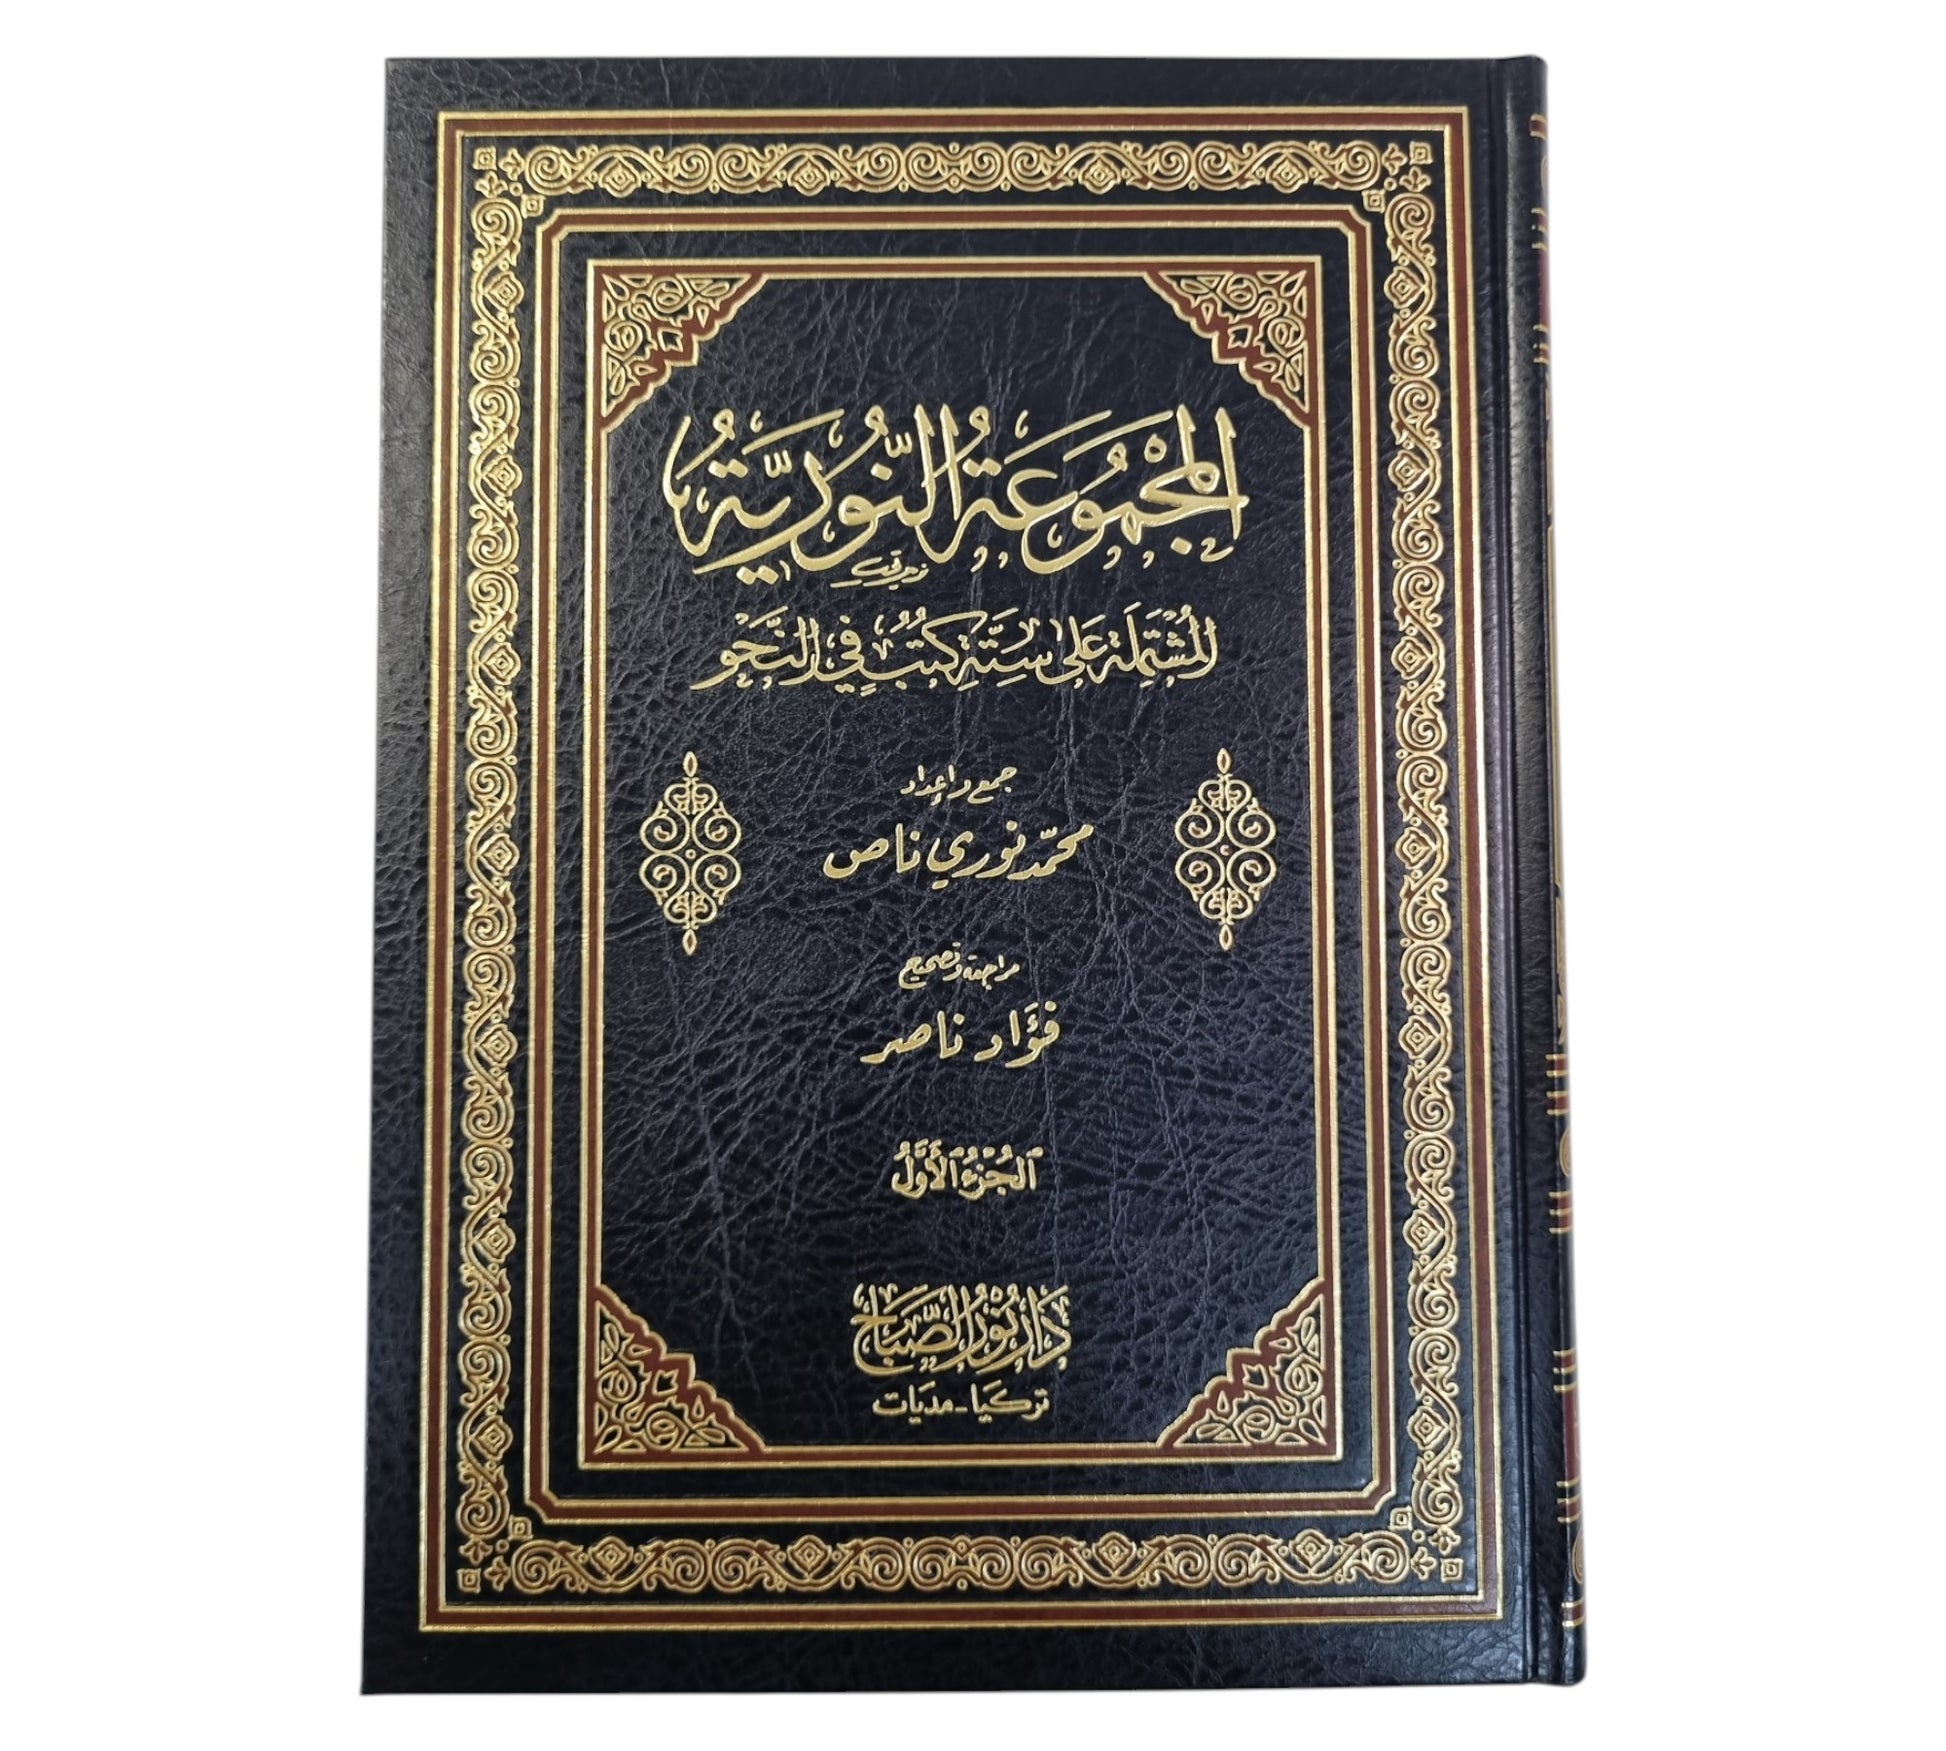 المَجْمُوعَةُ النُّورِيَّةُ
المُشْتَمِلَةُ عَلَى سِتَّةِ كُتُبٍ فِي النَّحْوِ
جمع وإعداد
محمّد نوري ناص
مراجعة وتصحيح
فؤَاد ناصر
الجُزْءُ الأَوَّلُ
دَارُ نُورِ الصَّبَاحِ
تركيَا - مديَات